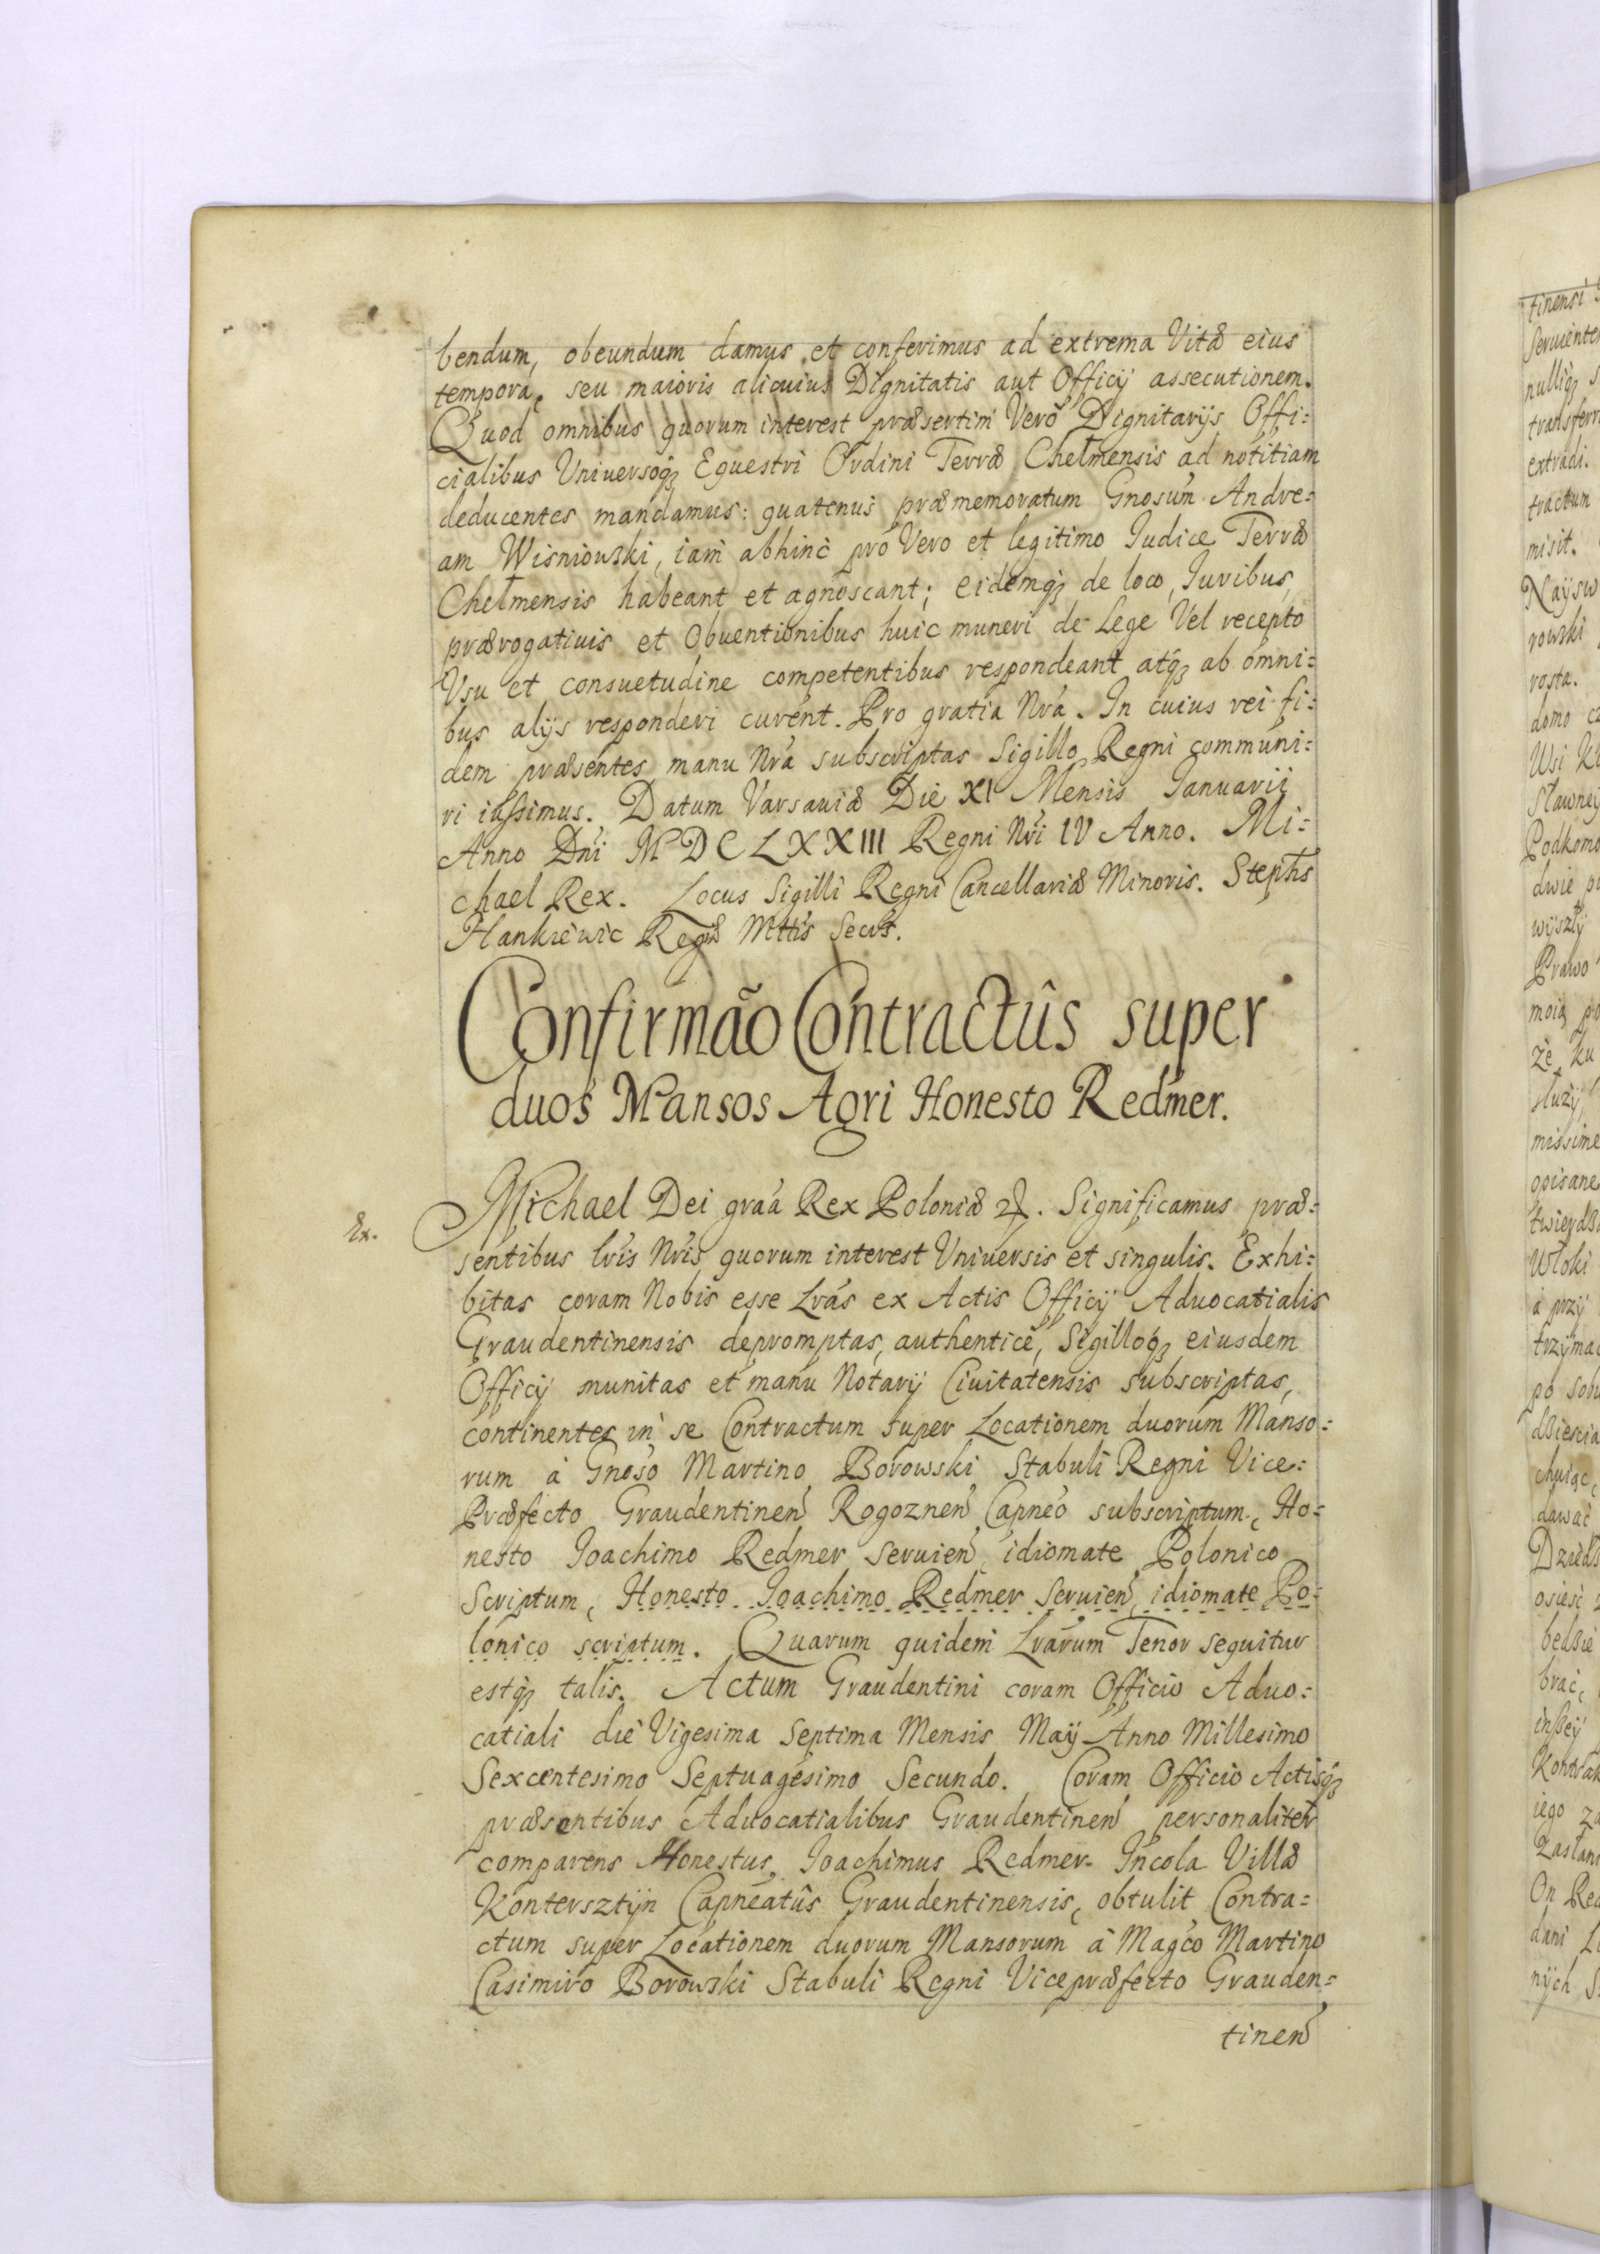 bendum, obeundum damus et conferimus ad extrema Vitæ eius
tempora, seu maioris alicuius Dignitatis aut Officÿ assecutionem.
Quod omnibus quorum interest præsertim Verò Dignitarÿs Offi:
cialibus Universoq₃ Equestri Ordini Terræ Chelmensis ad notitiam
deducentes mandamus: quatenus præmemoratum Gnosum Andre:
am Wisniowski, iam abhinc pro Vero et legitimo Iudice Terræ
Chelmensis habeant et agnoscant; eidemq₃ de loco, Iuribus,
prærogativis et Obuentionibus huic muneri de Lege Vel recepto
Vsu et consuetudine competentibus respondeant atq₃ ab omni:
bus alÿs responderi curent. Pro gratia Nrá. In cuius rei fi:
dem præsentes manu Nrá subscriptas Sigillo Regni communi:
ri iussimus. Datum Varsaviæ Die XI Mensis Ianuarii
Anno Dni MDCLXXIII Regni Nri IV Anno. Mi:
chael Rex. Locus Sigilli Regni Cancellariæ Minoris. Stephs
Hankiewic Regiæ Mttis Secrs.
Confirmão Contractûs super
duos Mansos Agri Honesto Redmer.
Ex.
Michael Dei graa Rex Poloniæ &. Significamus præ:
sentibus lris Nris quorum interest Vniversis et singulis. Exhi:
bitas coram Nobis esse Lras ex Actis Officÿ Aduocatialis
Graudentinensis depromptas, authenticè, Sigilloq₃ eiusdem
Officÿ munitas et manu Notarÿ Ciuitatensis subscriptas,
continentes in se Contractum super Locationem duorum Manso:
rum à Gnoso Martino Borowski Stabuli Regni Vice:
Præfecto Graudentinen Rogoznen Capneo subscriptum, Ho:
nesto Ioachimo Redmer seruien, idiomate Polonico
Scriptum, Honesto Ioachimo Redmer seruien, idiomate Po:
lonico scriptum. Quarum quidem Lrarum Tenor sequitur
estq₃ talis. Actum Graudentini coram Officio Aduo:
catiali die Vigesima Septima Mensis Maÿ Anno Millesimo
Sexcentesimo Septuagesimo Secundo. Coram Officio Actisq₃
præsentibus Aduocatialibus Graudentinen personaliter
comparens Honestus Ioachimus Redmer Incola Villæ
Kontersztÿn Capneatûs Graudentinensis, obtulit Contra:
ctum super Locationem duorum Mansorum à Magco Martino
Casimiro Borowski Stabuli Regni Vicepræfecto Grauden:
tinen
tinensi
nulliq₃
extradi.
tractum
misit.
rowski
rosta.
domo
Wsi
Podkomo
dwie
wÿszłÿ
Prawo
moią
że ku
służÿ
opisane
Włoki
a przÿ
trzÿma
dawać
osieść
brać,
inszeÿ
Kontrak
iego
On Re
dani
nÿch